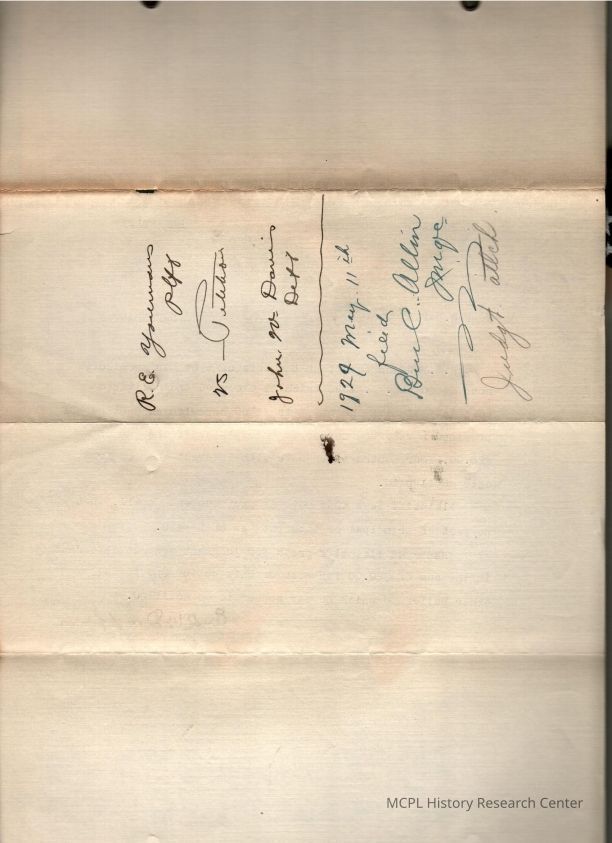 R.E. Youmans
Plff
vs — Petition
John W. Davis
Deft
1924 May 11th
filed
Ben C. Allin
Judge
Judgt. attch.
MCPL History Research Center